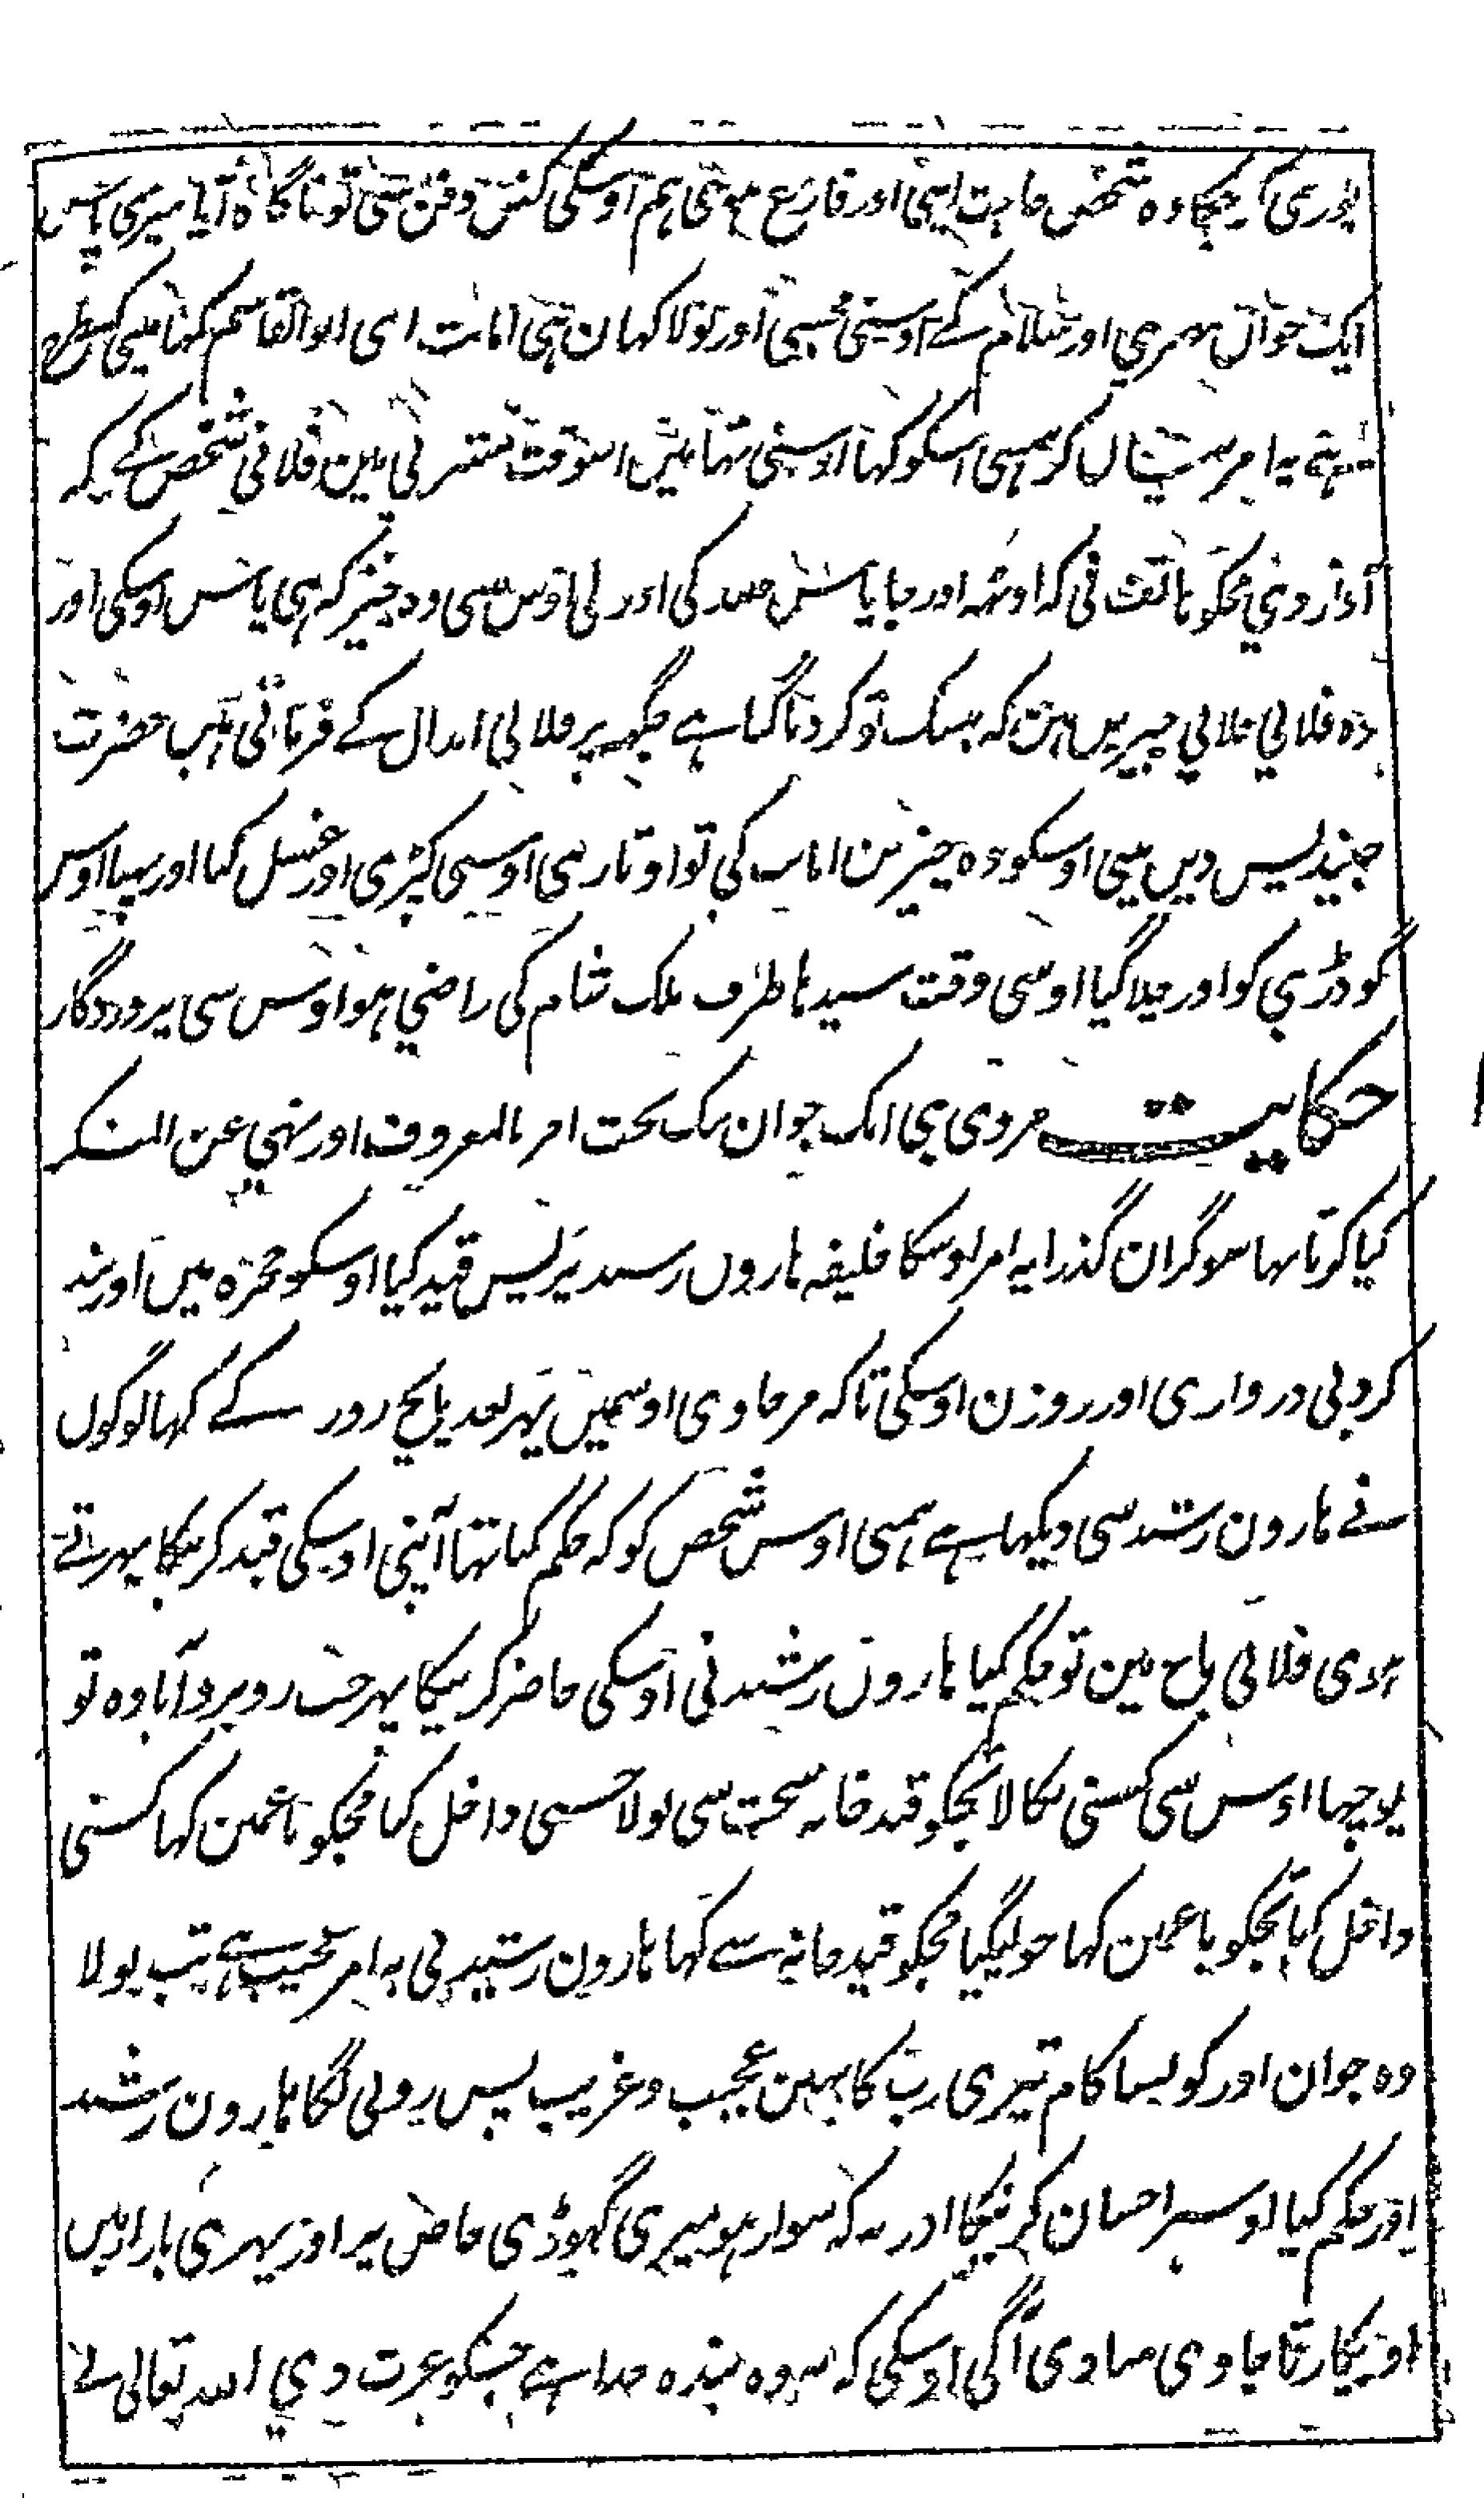 پوری کر چکا وہ شخص حاجت اپنی اور فارغ ہوی ہم اوسکی کفن دفن سی تو ناگاہ آیا میری پاس
ایک جوان مصری اور سلام کے اوسنی مجھی اور بولا کہان ہی امانت ای ابو القاسم کہا مینی کسطرح
ہے یہ امر بیان کر ہمسی اسکو کہا اوسنی تہا مین اسوقت مشربی مین فلانی شخص کے یکہ
آواز دی مجکو ہاتف نی کہ اوٹہ اور جا پاس جنید کی اور لی اوس سی وہ چیز کہ ہی پاس اوسکی اور
وہ فلانی فلانی چیزیں ہین کہ بیشک تو کردنا گیا ہے جگہہ پر فلانی ابدال کے فرماتی ہین حضرت
جنید پس دیں مینی اوسکو وہ چیزین امانت کی تو اوتاری اوسنی کپڑی اور غسل کیا اور پہنا اوس
گوڈری کو اور چلا گیا اوسی وقت سیدہا طرف ملک شام کی راضی ہو اوس سی پروردگار
حکایت مروی ہی ایک جوان نیک بخت امر بالمعروف اور نہی عن المنکر
کیا کرتا تہا سو گران گذرا یہ امر اوسکا خلیفہ ہارون رشید پر پس قید کیا اوسکو حجرہ میں اور بند
کر دیی دروازی اور روزن اوسکی تاکہ مر جاوی اوسمیں پہر بعد پانچ روز کے کہا لوگوں
نے ہارون رشید سی دیکہا ہے ہمنی اوس شخص کو کہ حکم کیا تہا آپنی اوسکی قید کرنیکا پہرتے
ہوی فلانی باغ مین تو حکم کیا ہارون رشید نی اوسکی حاضر کرنیکا پہر جب روبرو آیا وہ تو
پوچہا اوس سی کسنی نکالا تجکو قید خانہ سخت سی بولا جسنی داخل کیا مجکو باغمین کہا کسنی
داخل کیا تجکو باغمین کہا جو لیگیا مجکو قید خانہ سے کہا ہارون رشید نی یہ امر عجیب ہے تب بولا
وہ جوان اور کونسا کام تیری رب کا نہین عجیب و غریب پس رونی لگا ہارون رشید
اور حکم کیا اوسپر احسان کرنیکا اور یہ کہ سوار ہو میری گہوڈی خاص پر اور پہری بازارمیں
اور پکارتا جاوی منادی آگی اوسکی کہ یہ وہ بندہ خدا ہے جسکو عزت دی اللہ تعالی نے